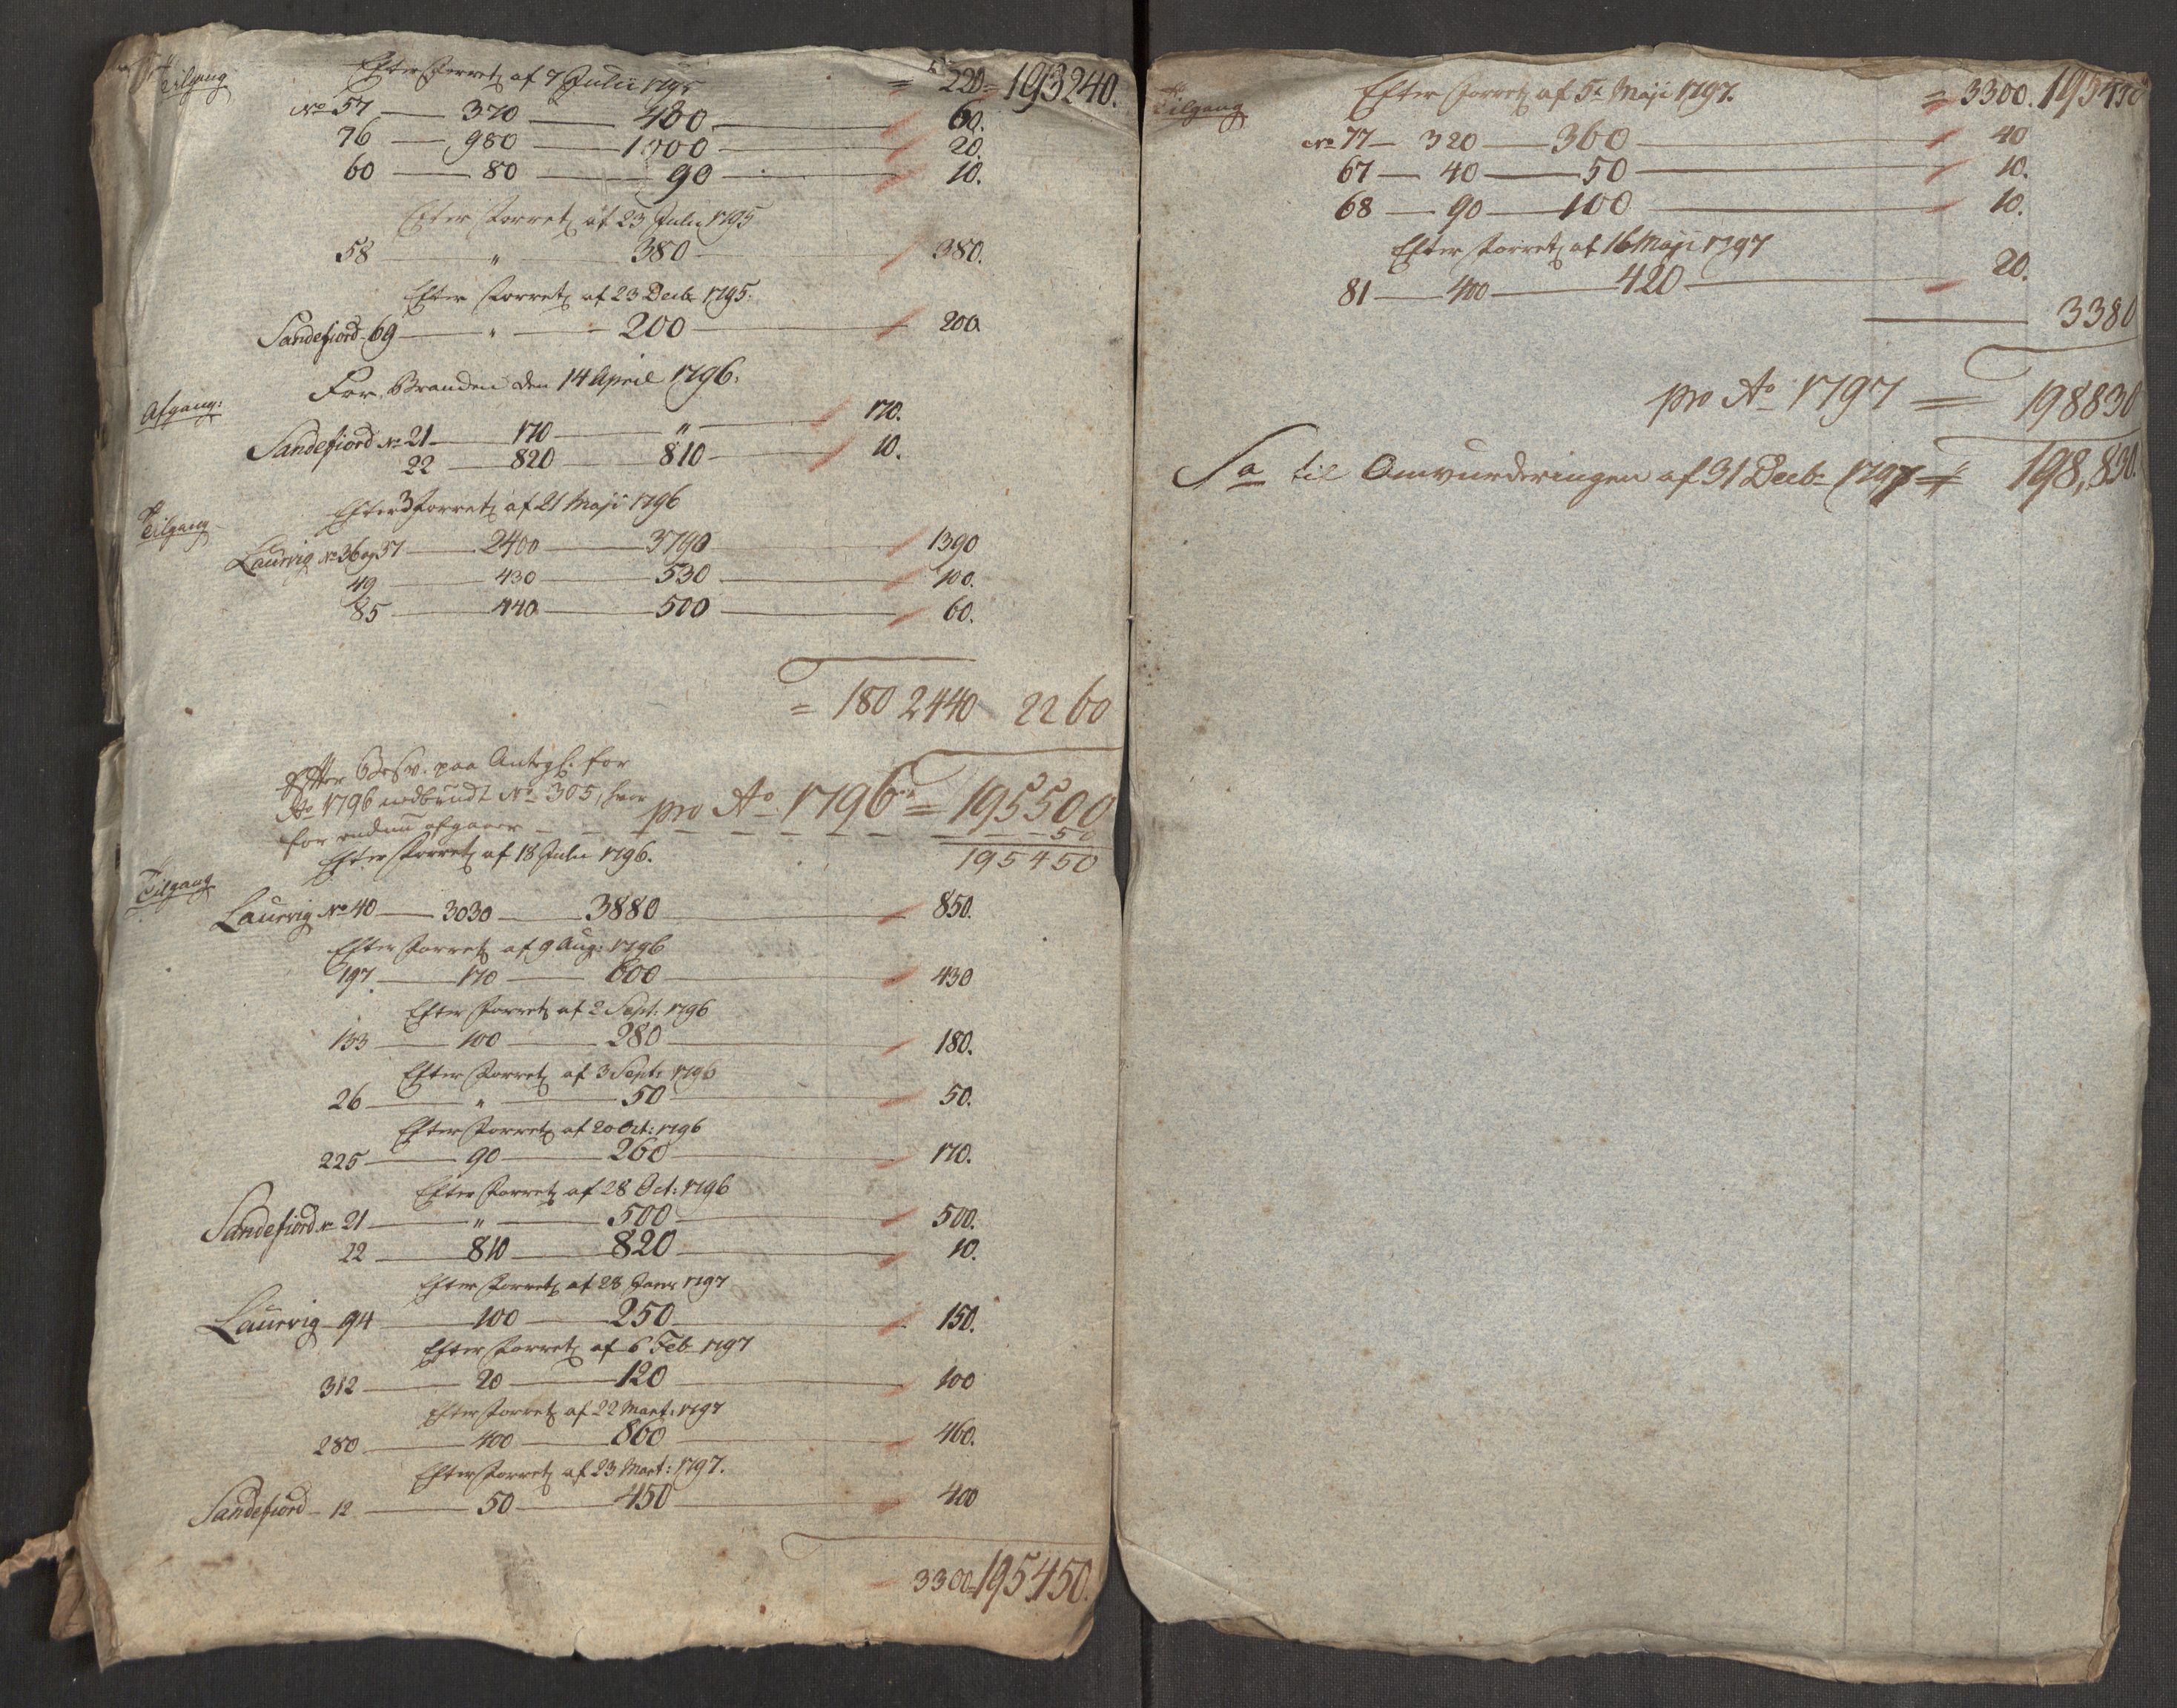 Tilgang
Efter Forretn af 7 Julii 1795 = 220 = 193240.
No 57 370 430 60.
76 980 1000 20.
60 80 90 10.
Efter Forretn af 23 Julii 1795
58 " 380 380.
Efter Forretn af 23 Decb 1795.
Sandefiord 69 " 200 200.
For Branden den 14 April 1796.
Afgang:
Sandefiord No 21 170 " 170.
22 820 810 10.
Tilgang
Efter Forretn af 21 Maji 1796
Laurvig No 36 og 37 2400 3790 1390
49 430 530 100.
85 440 500 60.
= 180 2440 2260
Efter Besv. paa Antegn: for
Ao 1796 No 305, hvor
pro Ao 1796 = 195500
for endnu afgaaer 50
195450
Efter Forretn af 18 Julii 1796.
Tilgang
Laurvig No 40 3030 3880 850.
Efter Forretn af 9 Aug: 1796
197. 170 600 430
Efter Forretn af 2 Sept: 1796
133 100 280 180.
Efter Forretn af 3 Sept: 1796
26 " 50 50.
Efter Forretn af 20 Oct: 1796
225 90 260 170.
Efter Forretn af 28 Oct: 1796
Sandefiord No 21 " 500 500.
22 810 820 10.
Efter Forretn af 28 Janr 1797
Laurvig 94 100 250 150.
Efter Forretn af 6 Feb 1797
312 20 120 100
Efter Forretn af 22 Mart: 1797
280 400 860 460.
Efter Forretn af 23 Mart: 1797.
Sandefiord 12 50 450 400
3300 = 195450.
Tilgang
Efter Forretn af 5t Maji 1797. = 3300. 195450
No 77 320 360 40
67 40 50 10.
68 90 100 10.
Efter Forretn af 16 Maji 1797
81 400 420 20.
3380
pro Ao 1797 = 198830
Sa til Omvurderingen af 31 Decb 1797 = 198,830.